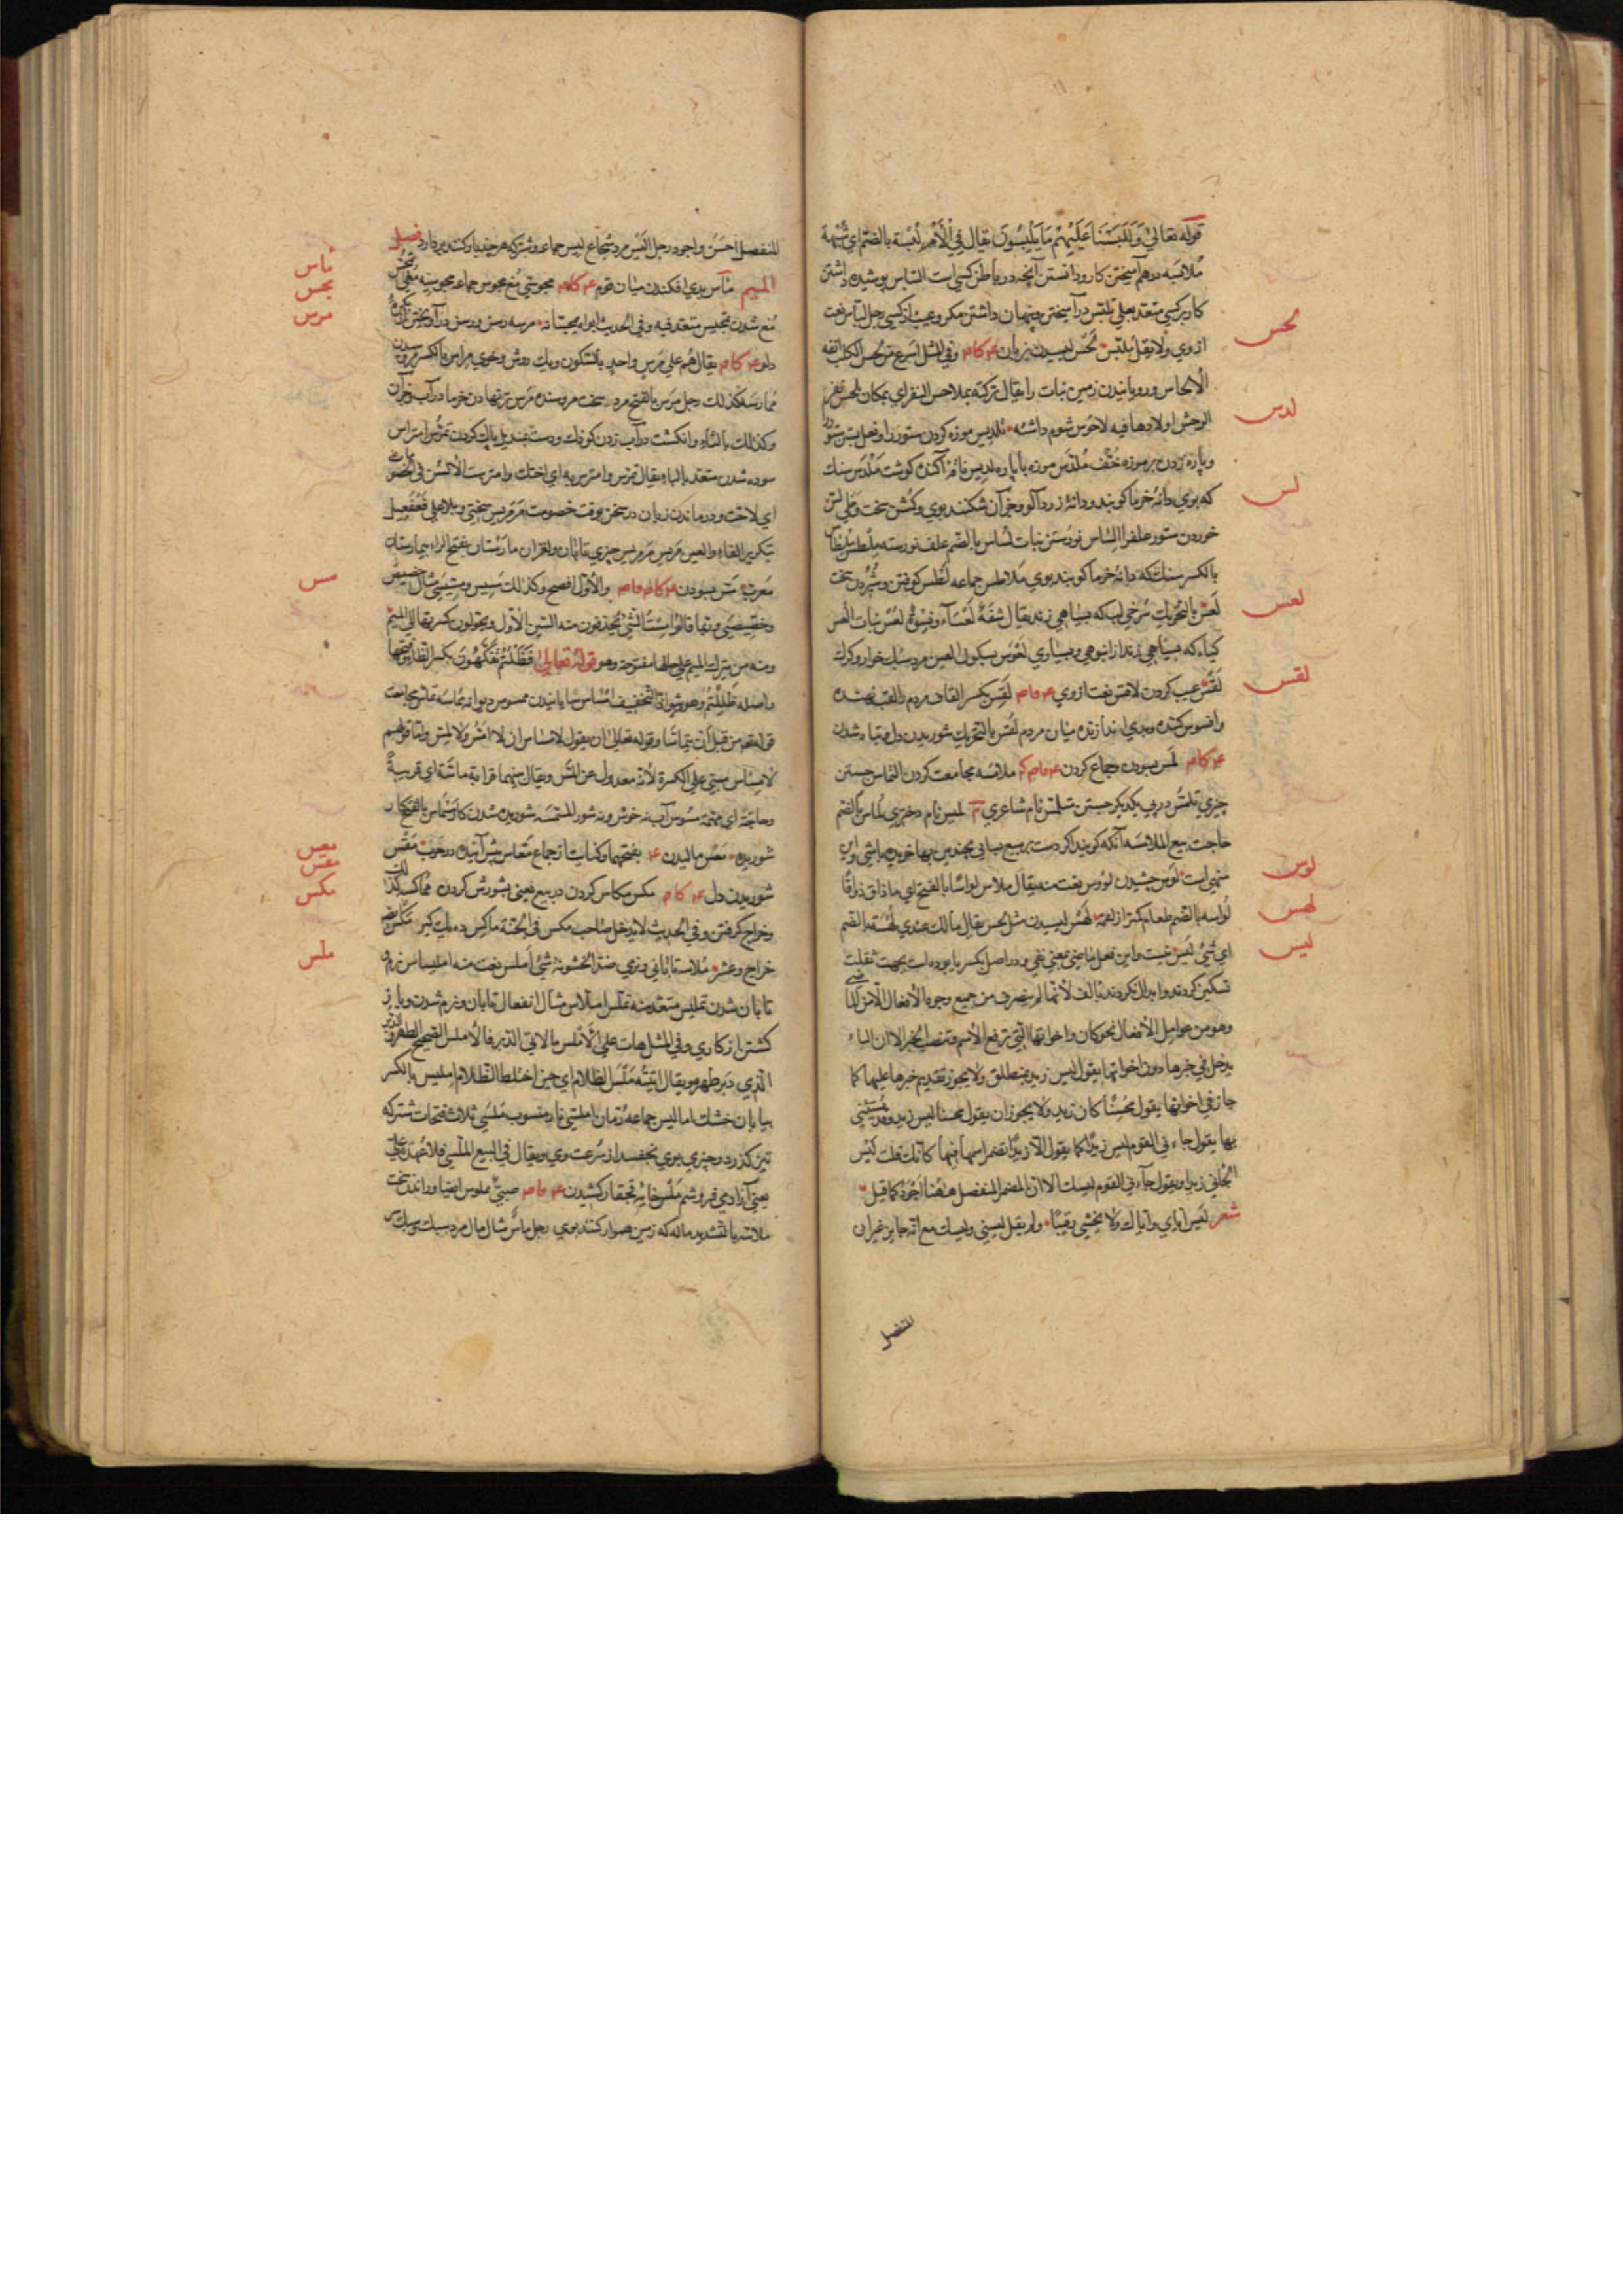 قوله تعالي وَلَلَبَسْنَا عَلَيْهِمْ مَا يَلْبِسُونَ يقال فِي الْأَمْرِ لُبْسَة بالضم اي شُبْهَة
مُلابَسَه درهم آميختن كار و دانستن آنچه در باطن كسي است التباس پوشيده داشتن
كار بر كسي متعد بعلي تلبّس درآميختن و پنهان داشتن مكر و عيب از كسي رجل لبّاس نعت
لحس
از وي ولا يقل مُلبّس لَحْس ليسيدن بزبان ع كام وفي المثل اسرع من لحس الكلب انفه
الالحاس و رويانيدن زمين نبات را يقال تركته بملاحس البقر اي بمكان لحس بقر
لدس
الوحش اولادها فيه لاحُوس شوم داشته تلديس موزه كردن ستور را و نعل بستن ستور را
و پاره زدن بر موزه خُفّ مُلَدَّس موزه با پاره لديس ناقه آكنده كوشت مِلْدَس سنك
لس
كه بوي دانهٔ خرما كوبند و دانهٔ زردآلو و جز آن شكنند بوي و كشن سخت وطي لسّ
خوردن ستور علف را السّاس نورستن نبات لُساس بالضم علف نورسته مِلْطس مِلْطاس
بالكسر سنك كه دانهٔ خرما كوبند بوي مَلاطس جماعه لَطْس كوفتن و سُپُردن سخت
لعس
لَعَس بالتحريك سُرخي لب كه بسياهي زند يقال شَفَةٌ لَعْسَاءُ و نِسْوَةٌ لُعْسٌ نبات العس
كياه كه بسياهي زند از انبوهي و بسياري لَعْوَس بسكون العين مرد سبك خوار و كرك
لقس
لَقْس عيب كردن لاقس نعت از وي ع ماص لَقِس بكسر القاف مردم را لقب نهنده
و افسوس كننده و بدي اندازنده ميان مردم لَقَس بالتحريك شوريدن دل و تباه شدن
ع كام لمس بسودن و جماع كردن ع ماص كم ملامسه مجامعت كردن التماس جستن
چيزي تلمّس در پي يكديكر جستن متلمّس نام شاعري م لميس نام دختري لُماس بالضم
حاجت بيع الملامسه آنكه كويند اكر دست بر مبيع بسابي بچندين بها خريده باشي و اين
لوس
منهي است لَوْس چشيدن لؤوس نعت منه يقال ملاس لواسًا بالفتح اي ماذاق ذواقًا
لهس
لُواسه بالضم طعام كمتر از لقمه لَهْس ليسيدن مثل لحس يقال مالك عندي لُهْسَة بالضم
ليس
اي شئ ليس نيست و اين فعل ماضي بمعني نفي و در اصل بكسر يا بوده است بجهت ثقلت
تسكين كردند و ابدال نكردند بالف لأنها لم يتصرف من جميع وجوه الأفعال الماضي
وهو من عوامل الأفعال نحو كان واخواتها التي ترفع الاسم وتنصب الخبر الا ان الباء
يدخل في خبرها دون اخواتها يقول ليس زيد بمنطلق ولا يجوز تقديم خبرها عليها كما
جاز في اخواتها يقول محسنًا كان زيد ولا يجوز ان يقول محسنا ليس زيد وقد يستثني
بها يقول جاءني القوم ليس زيدًا كما يقول الا زيدًا تضمر اسمها فيها كانك قلت ليس
الجائي زيدا ويقول جاءني القوم ليسك الا ان المضمر المنفصل ههنا اجود كما قيل
شعر ليس اياي واياك ولا يخشي رقيبًا ولم يقل ليسني وليسك مع انه جايز غير ان
المنفصل
المنفصل احسن و اجود رجل اَلْيَس مرد شجاع ليس جماعه و شتر كه هر چيز بار كنند بردارد فصل
ماس
الميم مأس بدي افكندن ميان قوم ع كام مجوسي مُغ مجوس جماعه مجوسيه
مجس
مُغ شدن تمجيس متعد فيه وفي الحديث ابواه يمجسانه مرسه رسن
مرس
دلو ع كام يقال هم علي مرس واحد بالسكون و يك روش و خوي مراس بالكسر
ممارسة كذلك رجل مَرِس بالفتح مرد سخت مرس تر نهادن خرما در آب
وكذلك بالثاء و انكشت در آب زدن كودك و دست بمنديل پاك كردن تمرّس امتراس
سوده شدن متعد بالباء يقال تمرّس و امترس به اي احتك و امترست الالسن في الخصومات
اي لاحت و درماندن زبان در سخن بوقت خصومت مَرْمَرِيس سختي و بلا علي فعفعيل
بتكرير الفاء والعين مرمريس چيزي تابان و لغزان مارستان بفتح الراء بيمارستان
مس
معرب مَسّ بسودن ع كام ماص والأول افصح وكذلك مسيس و مسيسي مثال خصيص
وخصيصي وربما قالوا مِسْتُ الشئ يحذفون منه السين الأول ويحولون كسرتها الي الميم
ومنه من يترك الميم علي حالها مفتوحة وهو قوله تعالي فَظَلْتُمْ تَفَكَّهُونَ بكسر الظاء وفتحها
واصله ظَلِلْتُمْ وهو شواذ التخفيف امساس بسايانيدن ممسوس ديوانه مماسه تماس مجامعت
قوله تعالي من قبل ان يتماسّا وقوله تعالي ان يقول لا مِساس اي لا اَمَسُّ ولا اُمَسُّ واما قولهم
لا مَساس مبني علي الكسرة لانه معدول عن المَسّ ويقال بينهما قرابة ماسّة اي قريبة
وحاجة اي مهمة مسوس آب نه خوش و نه شور مسمسه شوريده شدن كار مسماس بالفتح كار
معس
شوريده مَعْس ماليدن ع بفتحهما و كنايت از جماع متعاس پيش آينده در حرب مَغْس
مغس
مكس
شوريدن دل ع كام مكس مكاس كردن در بيع يعني بشورش كردن مماكسه كذلك
و خراج كرفتن وفي الحديث لا يدخل صاحب مكس في الجنة ماكس ده يك كير
ملس
خراج و عشر مُلاسة تاباني و نرمي ضد الخشونة شئ املس نعت منه امليساس نرم
تابان شدن تمليس متعد منه تملّس املاس مثال انفعال تابان و نرم شدن
كشتن از كاري وفي المثل هان علي الاملس ما لاقي الدبر فالاملس الصحيح الظهر والدبر
الذي دبر ظهره ويقال اتيته مَلَسَ الظلام اي حين اختلط الظلام امليس بالكسر
بيابان خشك اماليس جماعه رمان امليسي نار منسوب مَلَسَي ثلاث فتحات شتر كه
تيز كذرد و چيزي بوي نچفسد از سرعت وي ويقال في البيع المَلَسَي لا عهدة علي
يعني آزادي فروشم مَلْس خايه نجقار كشيدن ع ماص صبي مملوس ايضا و راندن سخت
ملاسة بالتشديد ماله كه زمين هموار كنند بوي رجل ماسٌ مثال مال مرد سبك